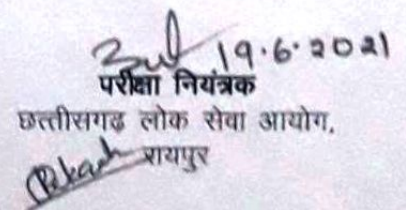 19.6.2021
परीक्षा नियंत्रक
छत्तीसगढ़ लोक सेवा आयोग,
रायपुर